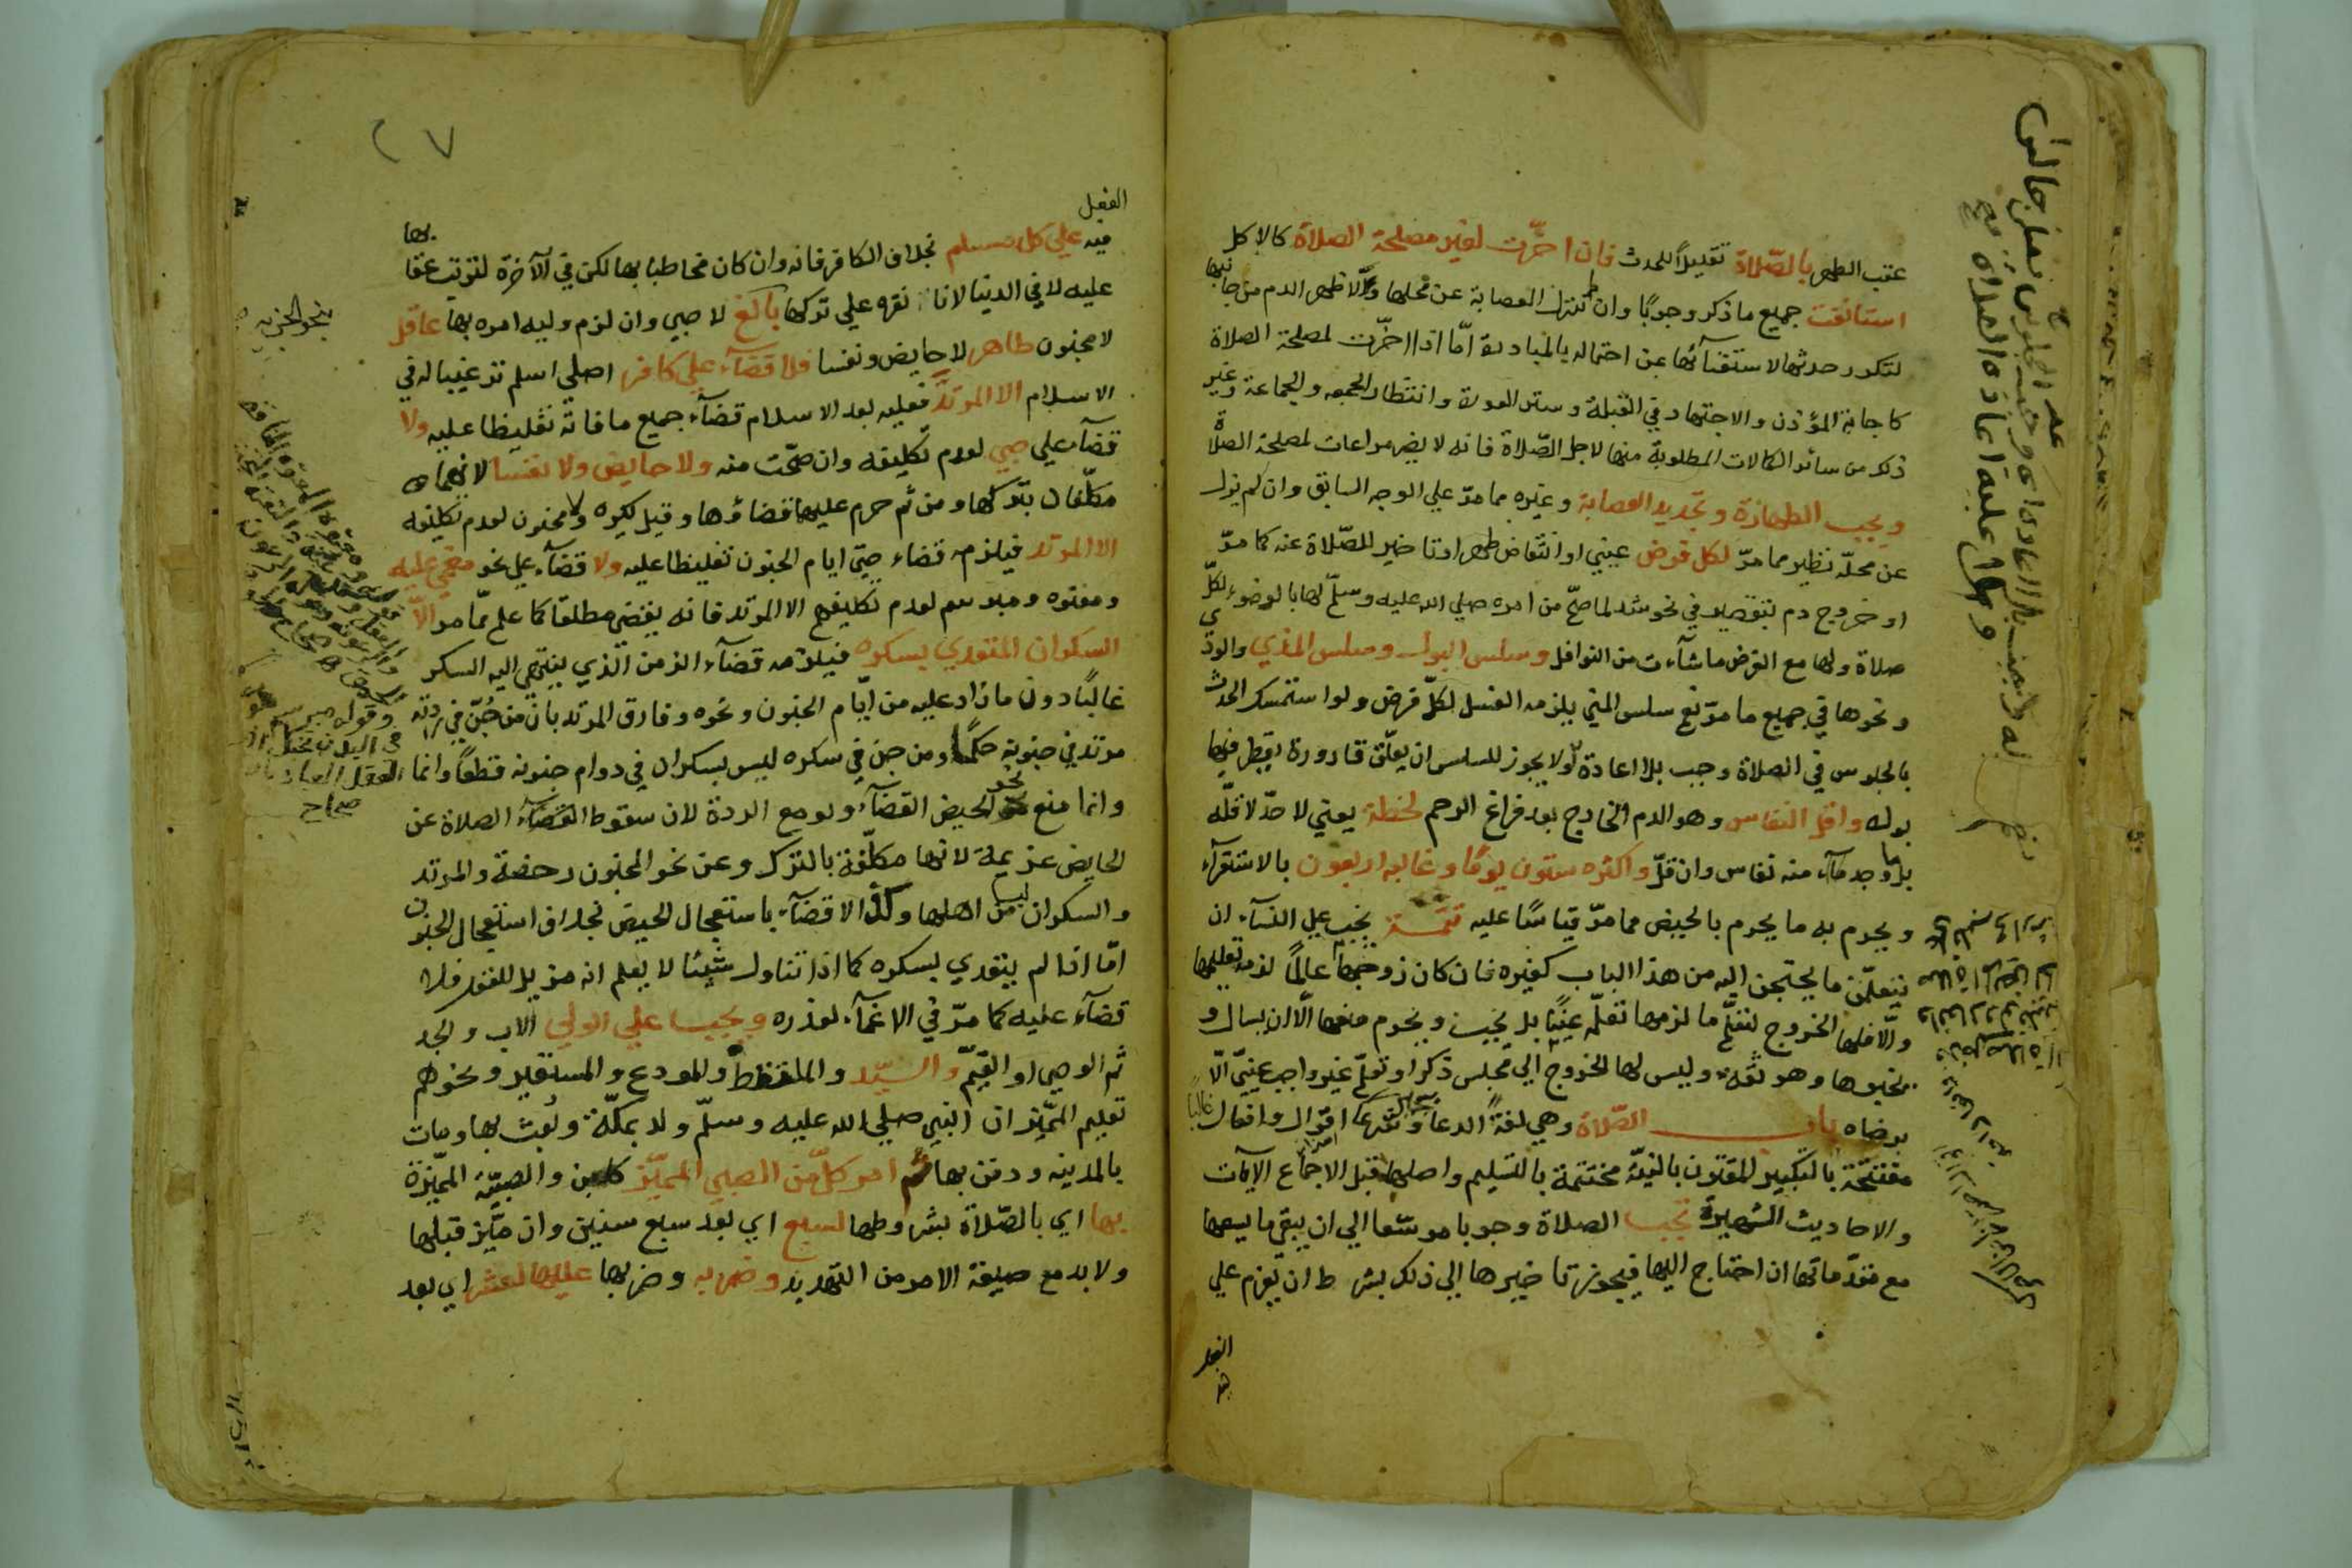 عقب الطهر بالصّلاة تقليلاً للحدث فان اخّرت لغير مصلحة الصلاة كالاكل
استانفت جميع ما ذكر وجوبًا وان لم تنزل العصابة عن محلها ولا ظهر الدم من جانبها
لتكرر حدثها الاستغنائها عن احتماله بالمبادرة امّا اذا اخّرت لمصلحة الصلاة
كاجابة المؤذن والاجتهاد في القبلة وستر العورة وانتظار الجمعه والجماعة وغير
ذلك من سائر الكمالات المطلوبة منها لاجل الصّلاة فانه لا يضر مراعات لمصلحة الصلاة
ويجب الطهارة وتجديد العصابة وغيره مما مرّ علي الوجه السابق وان لم تزل
عن محلّه نظير مما مرّ لكل فرض عيني او انتقاض طهر او تاخير للصّلاة عنه كما مرّ
او خروج دم بتقصير في نحو شد لما صحّ من امره صلي الله عليه وسلّم لها بالوضوء لكلّ
صلاة ولها مع الفرض ما شآءت من النوافل وسلس البول وسلس المذي والودي
ونحوها في جميع ما مرّ نعم سلس المني يلزمه الغسل لكلّ فرض ولو استمسك الحدث
بالجلوس في الصلاة وجب بلا اعادة ولا يجوز للسلس ان يعلّق قارورة يقطر فيها
بوله واقل النفاس وهو الدم الخارج بعد فراغ الرحم لحظة يعني لا حدّ لاقلّه
بل ما وجد منه نفاس وان قلّ واكثره ستون يومًا وغالبه اربعون بالاستقرآء
ويحرم به ما يحرم بالحيض مما مرّ قياسًا عليه تتمّة يجب علي النسآء ان
تتعلّمن ما يحتجن اليه من هذا الباب كغيره فان كان زوجها عالمًا لزمه تعليمها
والّا فلها الخروج لتعلّم ما لزمها تعلّمه عينًا بل يجب ويحرم منعها الّا ان يسال و
يخبرها وهو ثقة وليس لها الخروج الي مجلس ذكر او تعلّم غير واجب عينيّ الّا
برضاه باب الصّلاة وهي لغة الدعا وشرعا اقوال وافعال غالبًا
مفتتحة بالتكبير المقترن بالنيّة مختتمة بالتسليم واصلها قبل الاجماع الآيات
والاحاديث الشهيرة تجب الصلاة وجوبا موسّعا الي ان يبقي ما يسعها
مع مقدّماتها ان احتاج اليها فيجوز تاخيرها الي ذلك بشرط ان يعزم علي
الفعل
فيه
٢٧
الفعل
فيه علي كل مسلم بخلاف الكافر فانه وان كان مخاطبا بها لكن في الآخرة لترتب عقا بها
عليه لا في الدنيا لانا نقره علي تركها بالغ لا صبي وان لزم وليه امره بها عاقل
لا مجنون طاهر لا حايض ونفسا فلا قضآء علي كافر اصلي اسلم ترغيبا له في
الاسلام الا المرتدّ فعليه بعد الاسلام قضآء جميع ما فاته تغليظا عليه ولا
قضآء علي صبي لعدم تكليفه وان صحّت منه ولا حايض ولا نفسا لانهما
مكلّفان بتركها ومن ثم حرم عليهما قضاؤها وقيل يكره ولا مجنون لعدم تكليفه
الا المرتد فيلزمه قضاء حتي ايام الجنون تغليظا عليه ولا قضآء علي نحو مغمي عليه
ومعتوه ومبرسم لعدم تكليفهم الا المرتد فانه يقضي مطلقا كما علم ممّا مر الّا
السكران المتعدي بسكره فيلزمه قضآء الزمن الّذي ينتهي اليه السكر
غالبًا دون ما زاد عليه من ايّام الجنون ونحوه وفارق المرتد بان من جُنّ في ردته
مرتد في جنونه حكمًا ومن جنّ في سكره ليس بسكران في دوام جنونه قطعًا وانما
وانما منع نحو الحيض القضآء ولو مع الردة لان سقوط القضآء الصلاة عن
الحايض عزيمة لانها مكلّفة بالترك وعن نحو المجنون رخصة والمرتد
والسكران ليسا من اهلها وكذا لا قضآء باستعجال الحيض بخلاف استعجال الجنون
امّا اذا لم يتعدي بسكره كما اذا تناول شيئا لا يعلم انه مزيل للعقل فلا
قضآء عليه كما مرّ في الاغمآء لعذره ويجب علي الولي الاب والجد
ثم الوصي او القيّم والسيّد والملتقط والمودع والمستعير ونحوهم
تعليم المميّز ان النبي صلي الله عليه وسلّم ولد بمكّة وبُعث بها ومات
بالمدينه ودفن بها ثم امر كلّ من الصبي المميّز كابن والصبيّة المميّزة
بها اي بالصّلاة بشروطها لسبع اي بعد سبع سنين وان ميّز قبلها
ولا بد مع صيغة الامر من التهديد وضربه وضربها عليها لعشر اي بعد